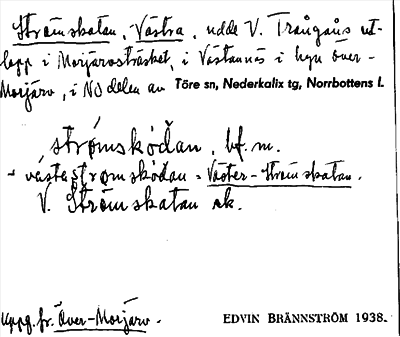 Strömskatan, Västra, udde V. Trångåns ut-
lopp i Morjärvsträsket, i Västannäs i byn Över-
Morjärv, i NO delen av Töre sn, Nederkalix tg, Norrbottens l.
strømskòdan, bf. m.
västerstrømskòdan = Väster-Strömskatan.
V. Strömskatan ek.
Uppg. fr. Över-Morjärv.
EDVIN BRÄNNSTRÖM 1938.